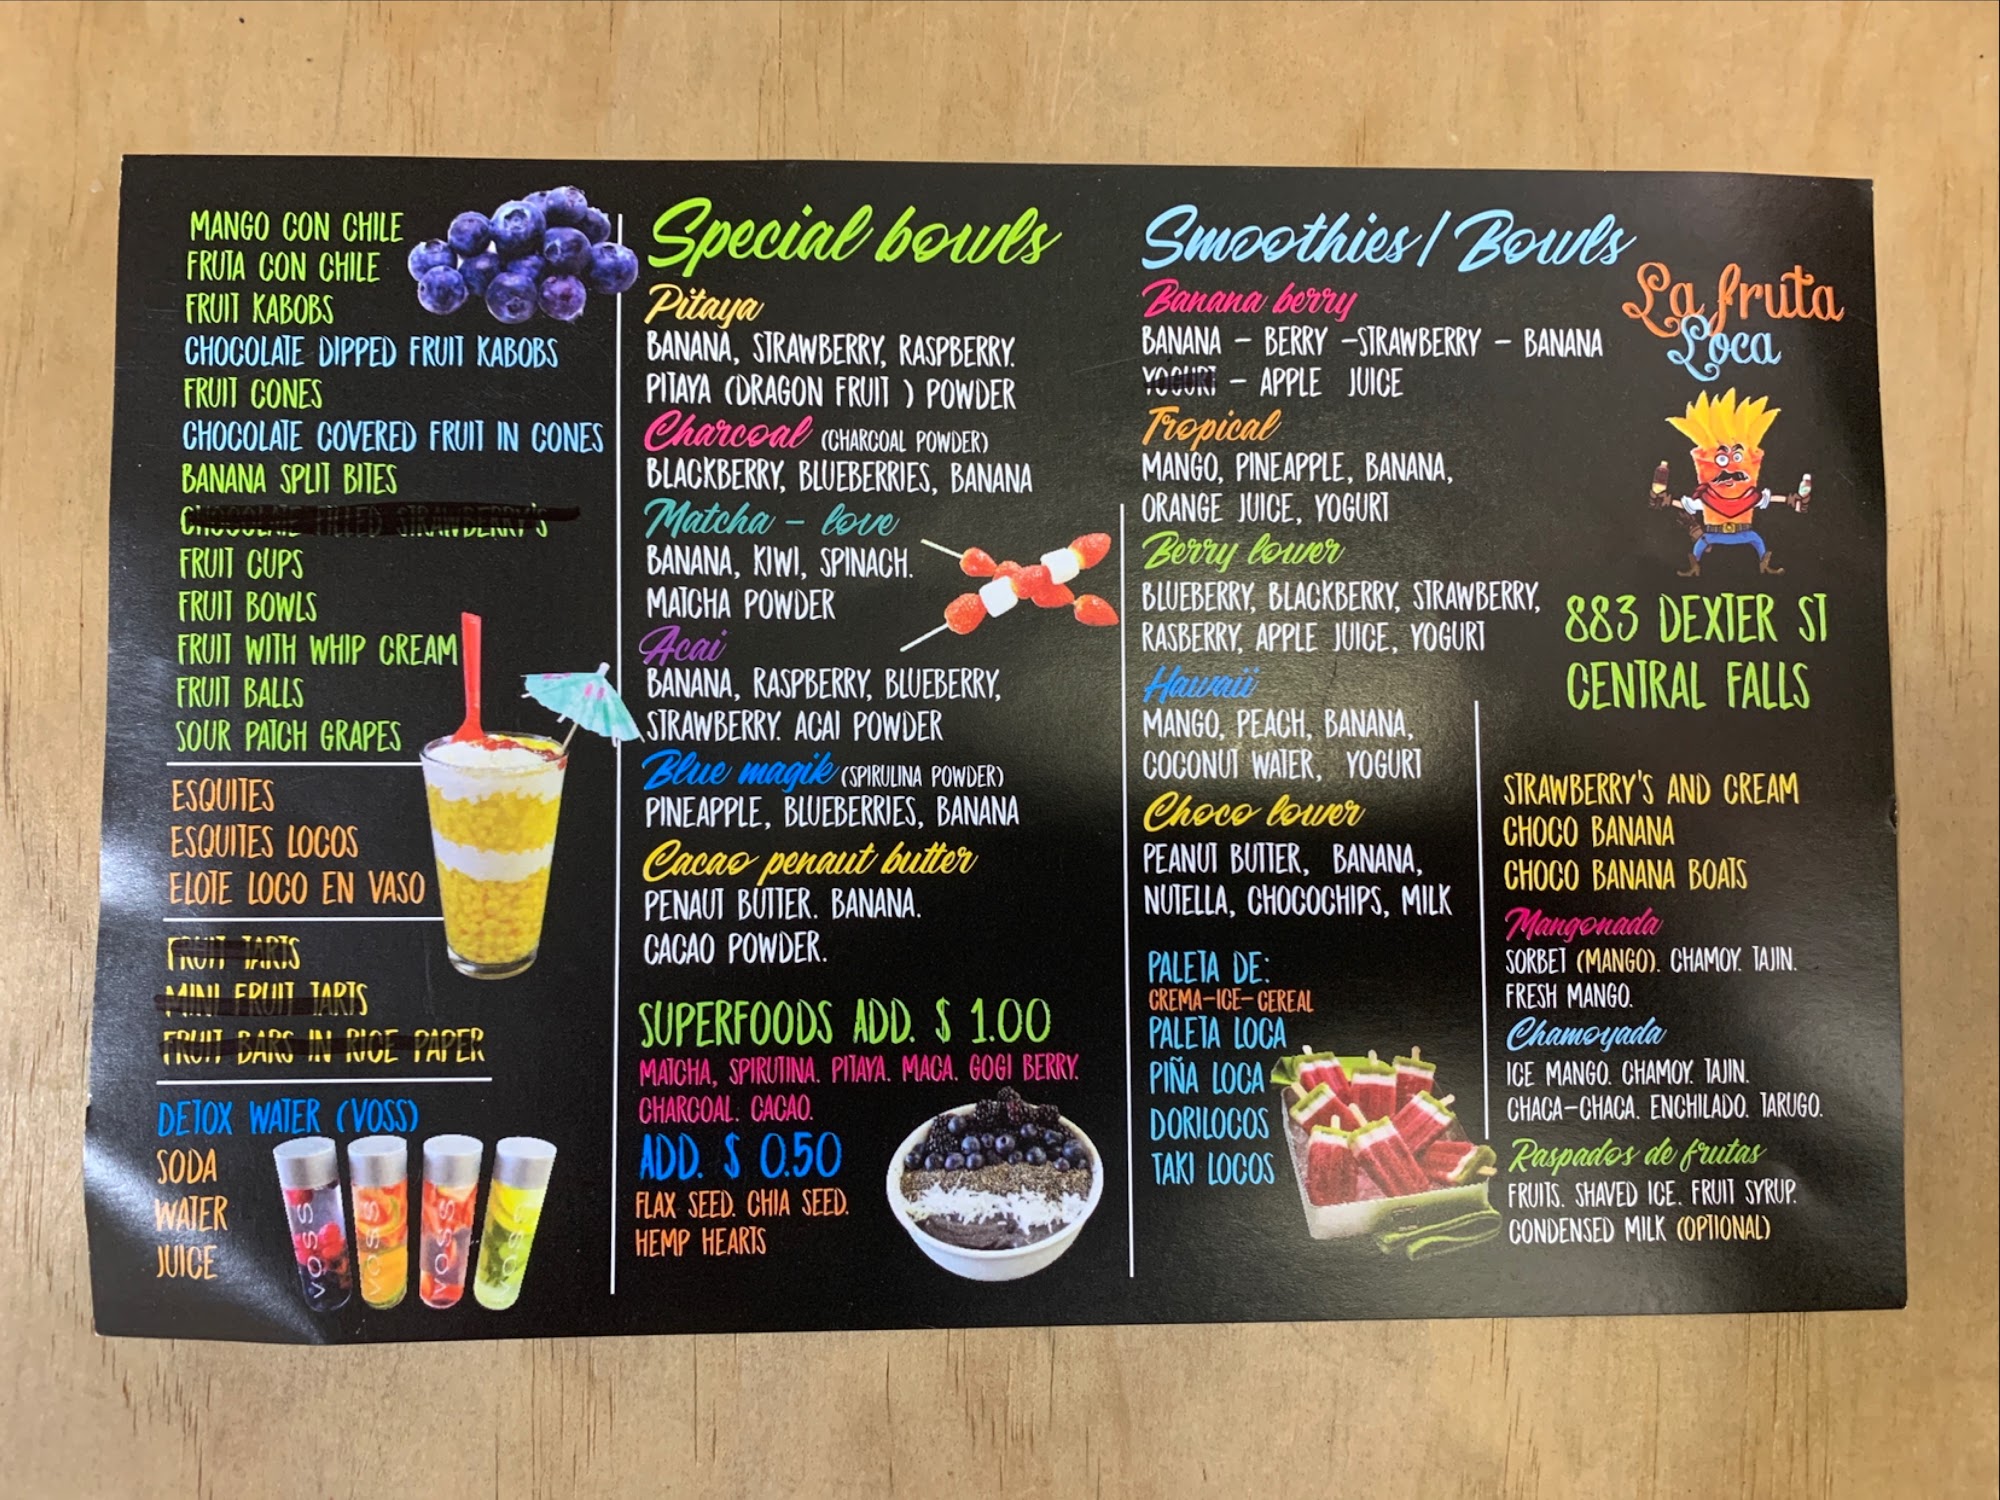 MANGO CON CHILE
FRUTA CON CHILE
FRUIT KABOBS
CHOCOLATE DIPPED FRUIT KABOBS
FRUIT CONES
CHOCOLATE COVERED FRUIT IN CONES
BANANA SPLIT BITES
CHOCOLATE FILLED STRAWBERRY'S
FRUIT CUPS
FRUIT BOWLS
FRUIT WITH WHIP CREAM
FRUIT BALLS
SOUR PATCH GRAPES
ESQUITES
ESQUITES LOCOS
ELOTE LOCO EN VASO
FRUIT TARTS
MINI FRUIT TARTS
FRUIT BARS IN RICE PAPER
DETOX WATER (VOSS)
SODA
WATER
JUICE
VOSS
VOSS
VOSS
VOSS
Special bowls
Pitaya
BANANA, STRAWBERRY, RASPBERRY.
PITAYA (DRAGON FRUIT ) POWDER
Charcoal (CHARCOAL POWDER)
BLACKBERRY, BLUEBERRIES, BANANA
Matcha - love
BANANA, KIWI, SPINACH.
MATCHA POWDER
Acai
BANANA, RASPBERRY, BLUEBERRY,
STRAWBERRY. ACAI POWDER
Blue magik (SPIRULINA POWDER)
PINEAPPLE, BLUEBERRIES, BANANA
Cacao penaut butter
PENAUT BUTTER. BANANA.
CACAO POWDER.
SUPERFOODS ADD. $ 1.00
MATCHA, SPIRUTINA. PITAYA. MACA. GOGI BERRY.
CHARCOAL. CACAO.
ADD. $ 0.50
FLAX SEED. CHIA SEED.
HEMP HEARTS
Smoothies / Bowls
Banana berry
BANANA - BERRY -STRAWBERRY - BANANA
YOGURT - APPLE JUICE
Tropical
MANGO, PINEAPPLE, BANANA,
ORANGE JUICE, YOGURT
Berry lower
BLUEBERRY, BLACKBERRY, STRAWBERRY,
RASBERRY, APPLE JUICE, YOGURT
Hawaii
MANGO, PEACH, BANANA,
COCONUT WATER, YOGURT
Choco lower
PEANUT BUTTER, BANANA,
NUTELLA, CHOCOCHIPS, MILK
PALETA DE:
CREMA-ICE-CEREAL
PALETA LOCA
PIÑA LOCA
DORILOCOS
TAKI LOCOS
La fruta
Loca
883 DEXTER ST
CENTRAL FALLS
STRAWBERRY'S AND CREAM
CHOCO BANANA
CHOCO BANANA BOATS
Mangonada
SORBET (MANGO). CHAMOY. TAJIN.
FRESH MANGO.
Chamoyada
ICE MANGO. CHAMOY. TAJIN.
CHACA-CHACA. ENCHILADO. TARUGO.
Raspados de frutas
FRUITS. SHAVED ICE. FRUIT SYRUP.
CONDENSED MILK (OPTIONAL)